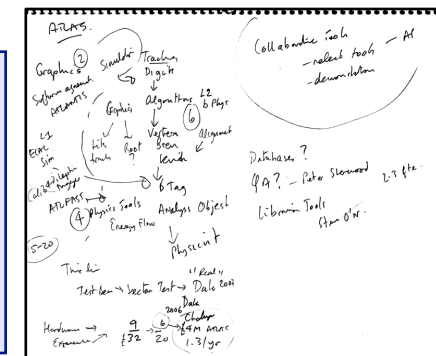 ATLAS.
Graphics 2 Simulation Tracking
Digits
Software agreement
ATLANTIS
Graphics Algorithms L2
b Phys
6
L1
ECAL
Sim
Root
?
Vertex
Alignment
trigger
ATLFAST
b Tag
4 Physics Tools Analysis Object
Energy Flow
Physicist
15-20
Time
"Real"
Test Beam Sector Test Data 2007
2006 Data
Challenge
Hardware 9 6 £4M ATLAS
Experience £32 20 1.3/yr
Collaborative Tools
- select tools - AP
- demonstration
Databases?
QA? - Peter Sherwood 2-3 fte.
Librarian Tools
Steve O'N.